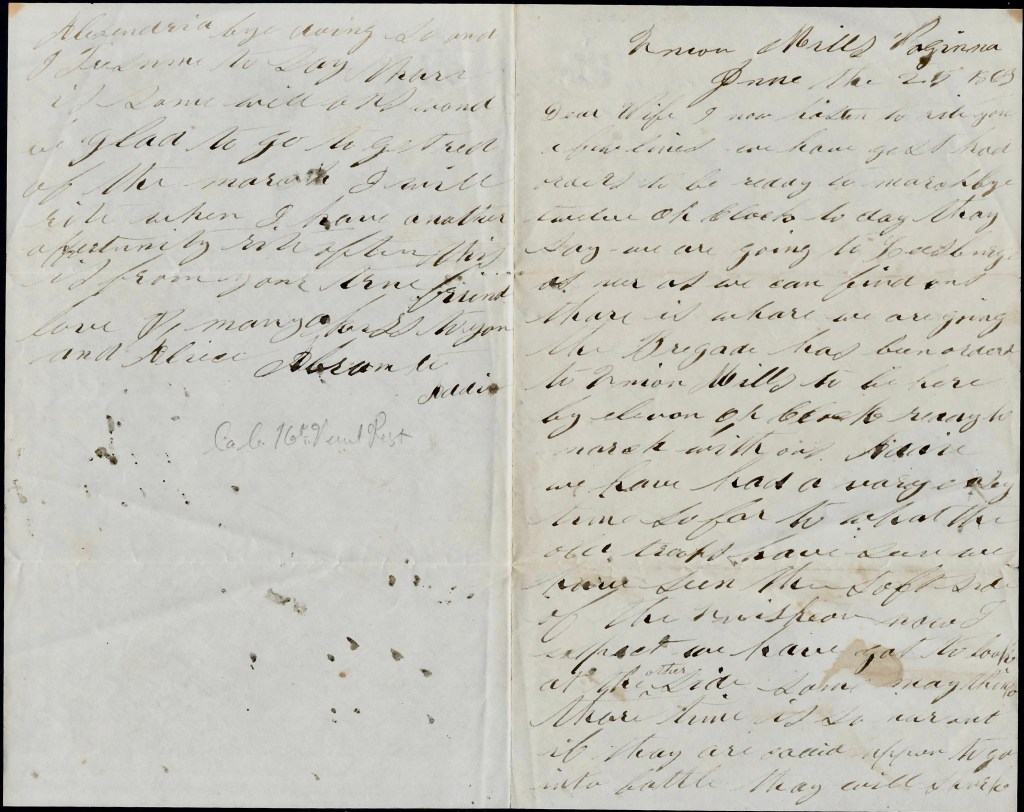 Union Mills Virginna
June the 25 1863
Dear Wife I now hasten to rite you
a few lines we have gest had
orders to be reday to march bye
twelve Oh Clock to day thay
say we are going to Leesburge
as near as we can find out
thare is whare we are going
the Brigade has been orderd
to Union Mills to be here
by eleven Oh Clock reday to
march with ous Addie
we have had a vary easy
time so far to what the
old troops have seen we
have seen the soft side
of the now I
expect we have got to look
at the other side some may think
thare time is so near out
if thay are caled uppon to go
into battle thay will
Alexandria bye doing so and
I Presume to say thare
is some will ous woud
be glad to go to get red
of the march I will
rite when I have another
oppertunity rite often this
is from your true friend
love & many to you
and Alice Abram to
Addie
Co C. 16th Vermt Regt